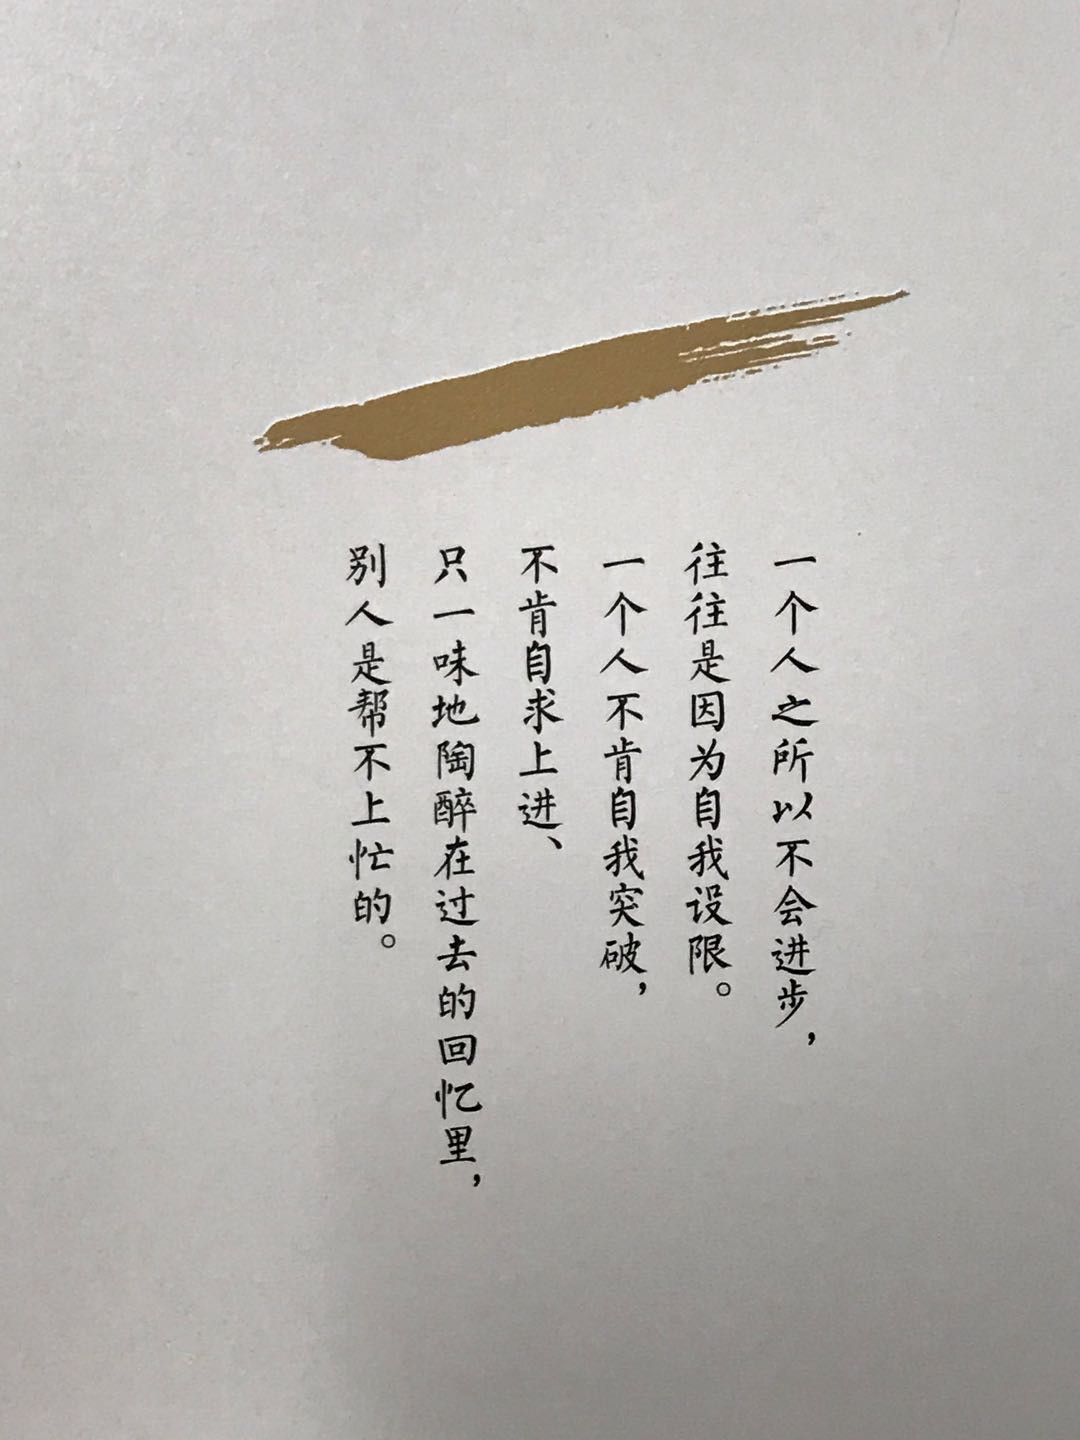 一个人之所以不会进步，
往往是因为自我设限。
一个人不肯自我突破，
不肯自求上进、
只一味地陶醉在过去的回忆里，
别人是帮不上忙的。